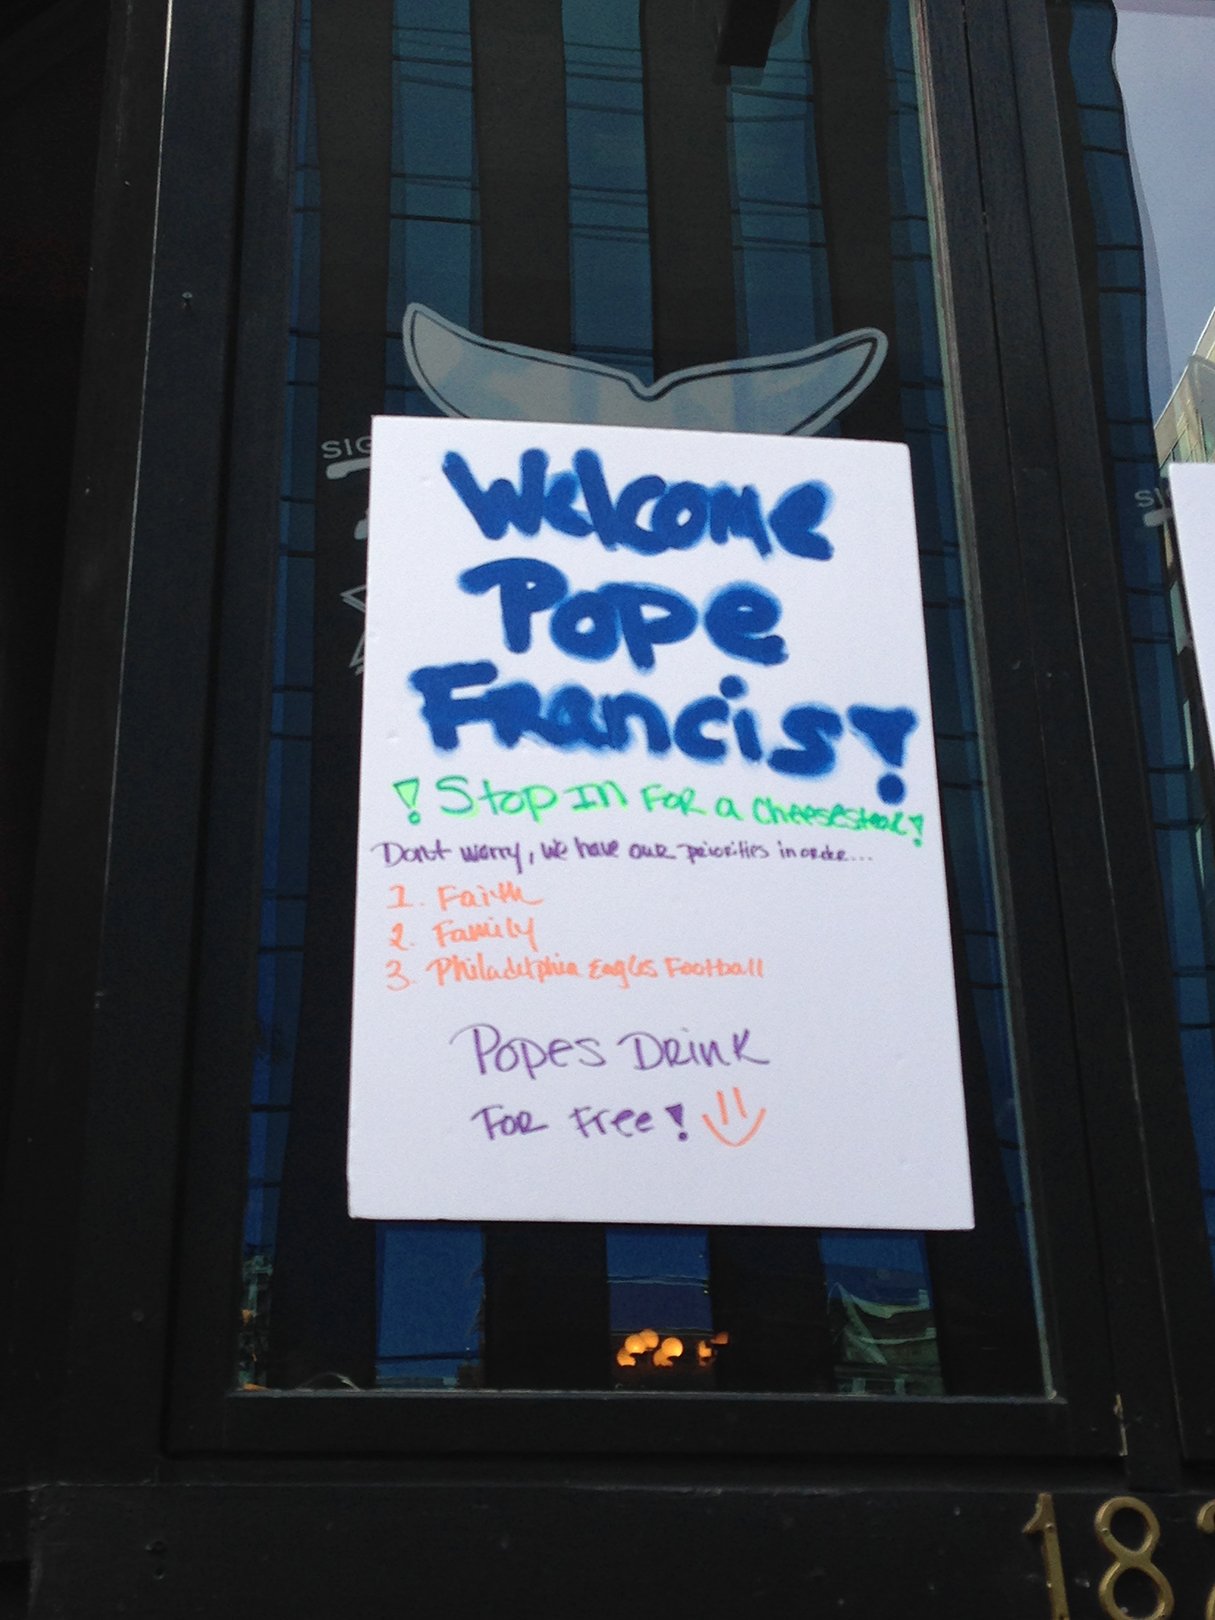 SIG
Welcome
Pope
Francis!
! Stop In For a Cheesesteak!
Don't worry, we have our priorities in order...
1. Faith
2. Family
3. Philadelphia Eagles Football
Popes Drink
For Free!
18